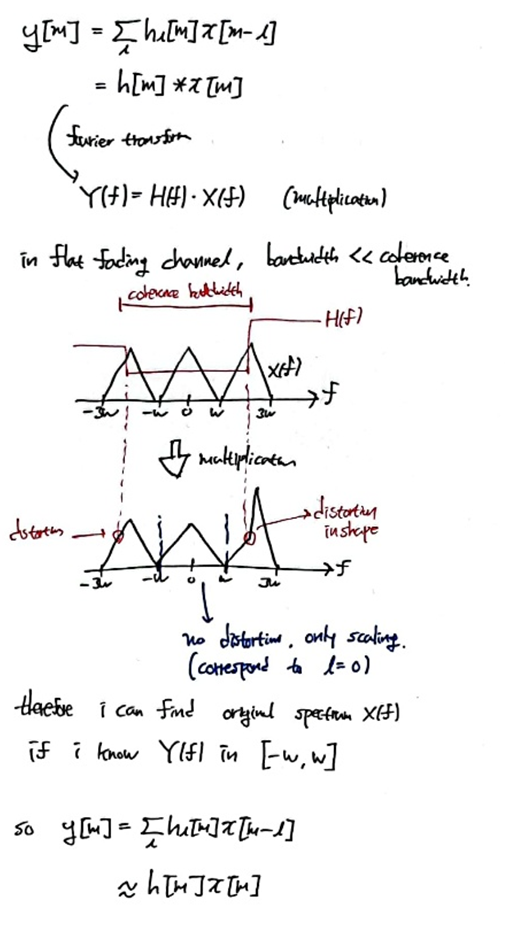 y[m] = Σ_l h_l[m] x[m-l]
= h[m] * x[m]
fourier transform
Y(f) = H(f) · X(f) (multiplication)
in flat fading channel, bandwidth << coherence
bandwidth.
coherence bandwidth
H(f)
X(f)
-3w -w 0 w 3w f
multiplication
distortion
distortion
in shape
-3w -w 0 w 3w f
no distortion, only scaling.
(correspond to l=0)
therefore i can find original spectrum X(f)
if i know Y(f) in [-w, w]
so y[m] = Σ_l h_l[m] x[m-l]
≈ h[m] x[m]